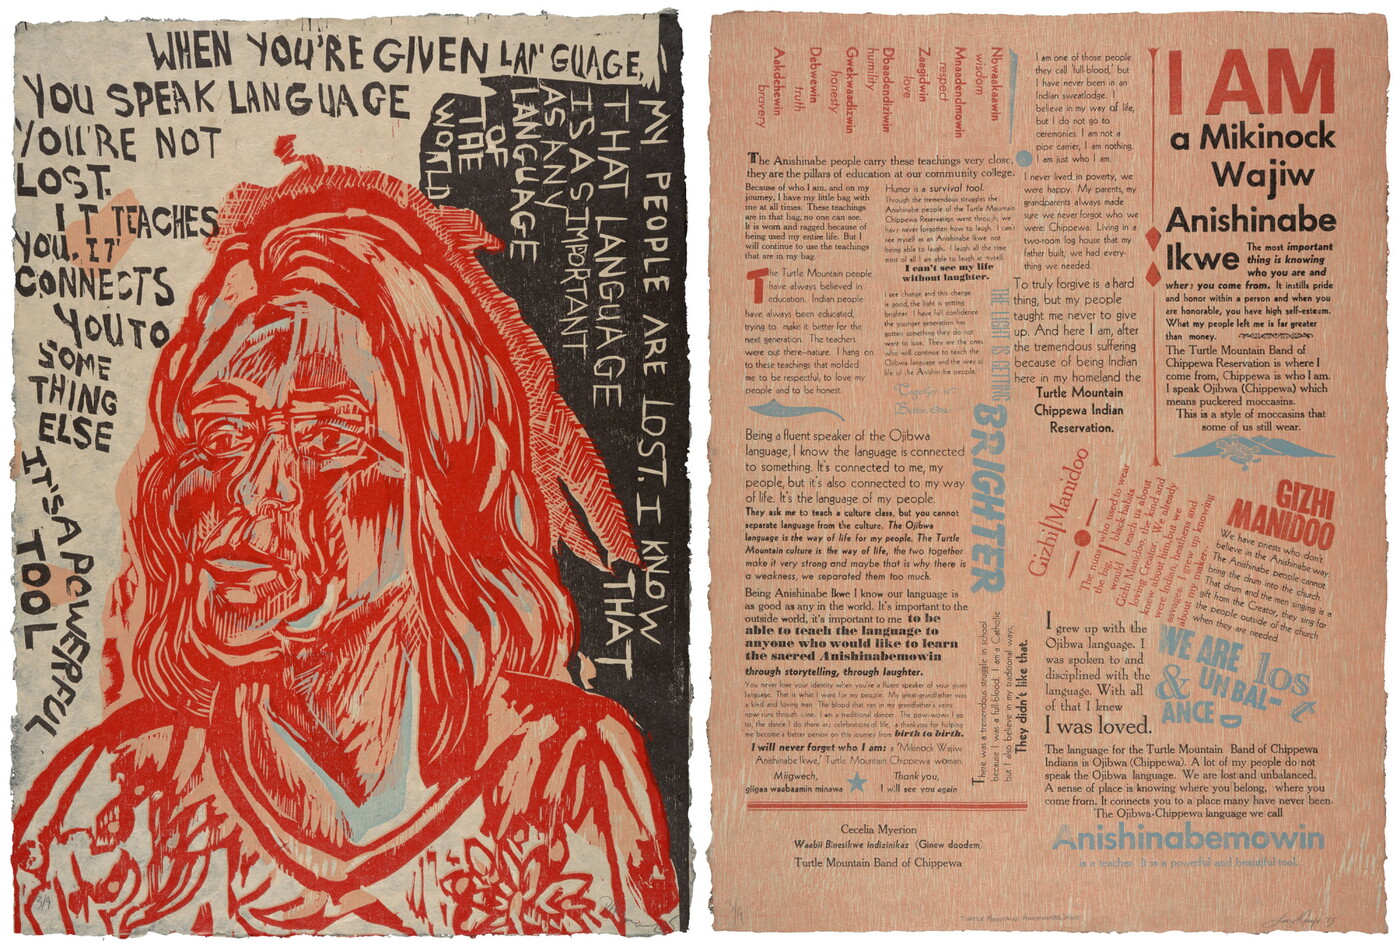 WHEN YOU'RE GIVEN LANGUAGE,
YOU SPEAK LANGUAGE
YOU'RE NOT
LOST.
IT TEACHES
YOU. IT
CONNECTS
YOU TO
SOME
THING
ELSE
IT'S A POWERFUL
TOOL
MY PEOPLE ARE LOST. I KNOW
THAT
THAT LANGUAGE
IS AS IMPORTANT
AS ANY
LANGUAGE
OF
THE
WORLD
3/9
Nbwaakaawin
wisdom
Mnaadendmowin
respect
Zaagidwin
love
Dbaadendiziwin
humility
Gwekwaadizwin
honesty
Debwewin
truth
Aakdehewin
bravery
The Anishinabe people carry these teachings very close,
they are the pillars of education at our community college.
Because of who I am, and on my
journey, I have my little bag with
me at all times. These teachings
are in that bag, no one can see.
It is worn and ragged because of
being used my entire life. But I
will continue to use the teachings
that are in my bag.
The Turtle Mountain people
have always believed in
education. Indian people
have always been educated,
trying to make it better for the
next generation. The teachers
were out there–nature. I hang on
to these teachings that molded
me to be respectful, to love my
people and to be honest.
Humor is a survival tool.
Through the tremendous struggles the
Anishinabe people of the Turtle Mountain
Chippewa Reservation went through, we
have never forgotten how to laugh. I can't
see myself as an Anishinabe Ikwe not
being able to laugh. I laugh all the time
most of all I am able to laugh at myself.
I can't see my life
without laughter.
I see change and this change
is good, the light is getting
brighter. I have full confidence
the younger generation has
gotten something they do not
want to lose. They are the ones
who will continue to teach the
Ojibwa language and the way of
life of the Anishinabe people.
THE LIGHT IS GETTING
BRIGHTER
Being a fluent speaker of the Ojibwa
language, I know the language is connected
to something. It's connected to me, my
people, but it's also connected to my way
of life. It's the language of my people.
They ask me to teach a culture class, but you cannot
separate language from the culture. The Ojibwa
language is the way of life for my people. The Turtle
Mountain culture is the way of life, the two together
make it very strong and maybe that is why there is
a weakness, we separated them too much.
Being Anishinabe Ikwe I know our language is
as good as any in the world. It's important to the
outside world, it's important to me to be
able to teach the language to
anyone who would like to learn
the sacred Anishinabemowin
through storytelling, through laughter.
You never lose your identity when you're a fluent speaker of your given
language. That is what I want for my people. My great-grandfather was
a kind and loving man. The blood that ran in my grandfather's veins
now runs through mine. I am a traditional dancer. The pow-wows I go
to, the dance I do there are celebrations of life, a thank you for helping
me become a better person on this journey from birth to birth.
I will never forget who I am: a 'Mikinock Wajiw
Anishinabe Ikwe,' Turtle Mountain Chippewa woman.
Miigwech,
gligaa waabaamin minawa
Thank you,
I will see you again
Cecelia Myerion
Waabii Binesikwe Indizinikaz (Ginew doodem)
Turtle Mountain Band of Chippewa
I am one of those people
they call 'full-blood,' but
I have never been in an
Indian sweatlodge. I
believe in my way of life,
but I do not go to
ceremonies. I am not a
pipe carrier, I am nothing.
I am just who I am.
I never lived in poverty, we
were happy. My parents, my
grandparents always made
sure we never forgot who we
were Chippewa. Living in a
two-room log house that my
father built, we had every-
thing we needed.
To truly forgive is a hard
thing, but my people
taught me never to give
up. And here I am, after
the tremendous suffering
because of being Indian
here in my homeland the
Turtle Mountain
Chippewa Indian
Reservation.
I AM
a Mikinock
Wajiw
Anishinabe
Ikwe
The most important
thing is knowing
who you are and
where you come from. It instills pride
and honor within a person and when you
are honorable, you have high self-esteem.
What my people left me is far greater
than money.
The Turtle Mountain Band of
Chippewa Reservation is where I
come from, Chippewa is who I am.
I speak Ojibwa (Chippewa) which
means puckered moccasins.
This is a style of moccasins that
some of us still wear.
Gizhi Manidoo
The nuns who used to wear
the big, black habits
would teach us about
Gizhi Manidoo, the kind and
loving Creator. We already
knew about him, but we
were Indian, heathens and
savages. I grew up knowing
about my maker.
GIZHI
MANIDOO
We have priests who don't
believe in the Anishinabe way.
The Anishinabe people cannot
bring the drum into the church.
That drum and the men singing is a
gift from the Creator, they sing for
the people outside of the church
when they are needed.
There was a tremendous struggle in school
because I was a full-blood. I am a Catholic
but I also believe in my traditional ways.
They didn't like that.
I grew up with the
Ojibwa language. I
was spoken to and
disciplined with the
language. With all
of that I knew
I was loved.
WE ARE lost
& UNBAL-
ANCED
The language for the Turtle Mountain Band of Chippewa
Indians is Ojibwa (Chippewa). A lot of my people do not
speak the Ojibwa language. We are lost and unbalanced.
A sense of place is knowing where you belong, where you
come from. It connects you to a place many have never been.
The Ojibwa-Chippewa language we call
Anishinabemowin
is a teacher. It is a powerful and beautiful tool.
TURTLE MOUNTAIN ANISHINABE IKWE